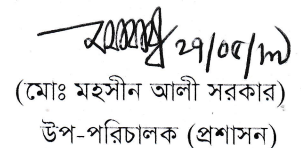 ২৭/০৫/১৭
(মোঃ মহসীন আলী সরকার)
উপ-পরিচালক (প্রশাসন)